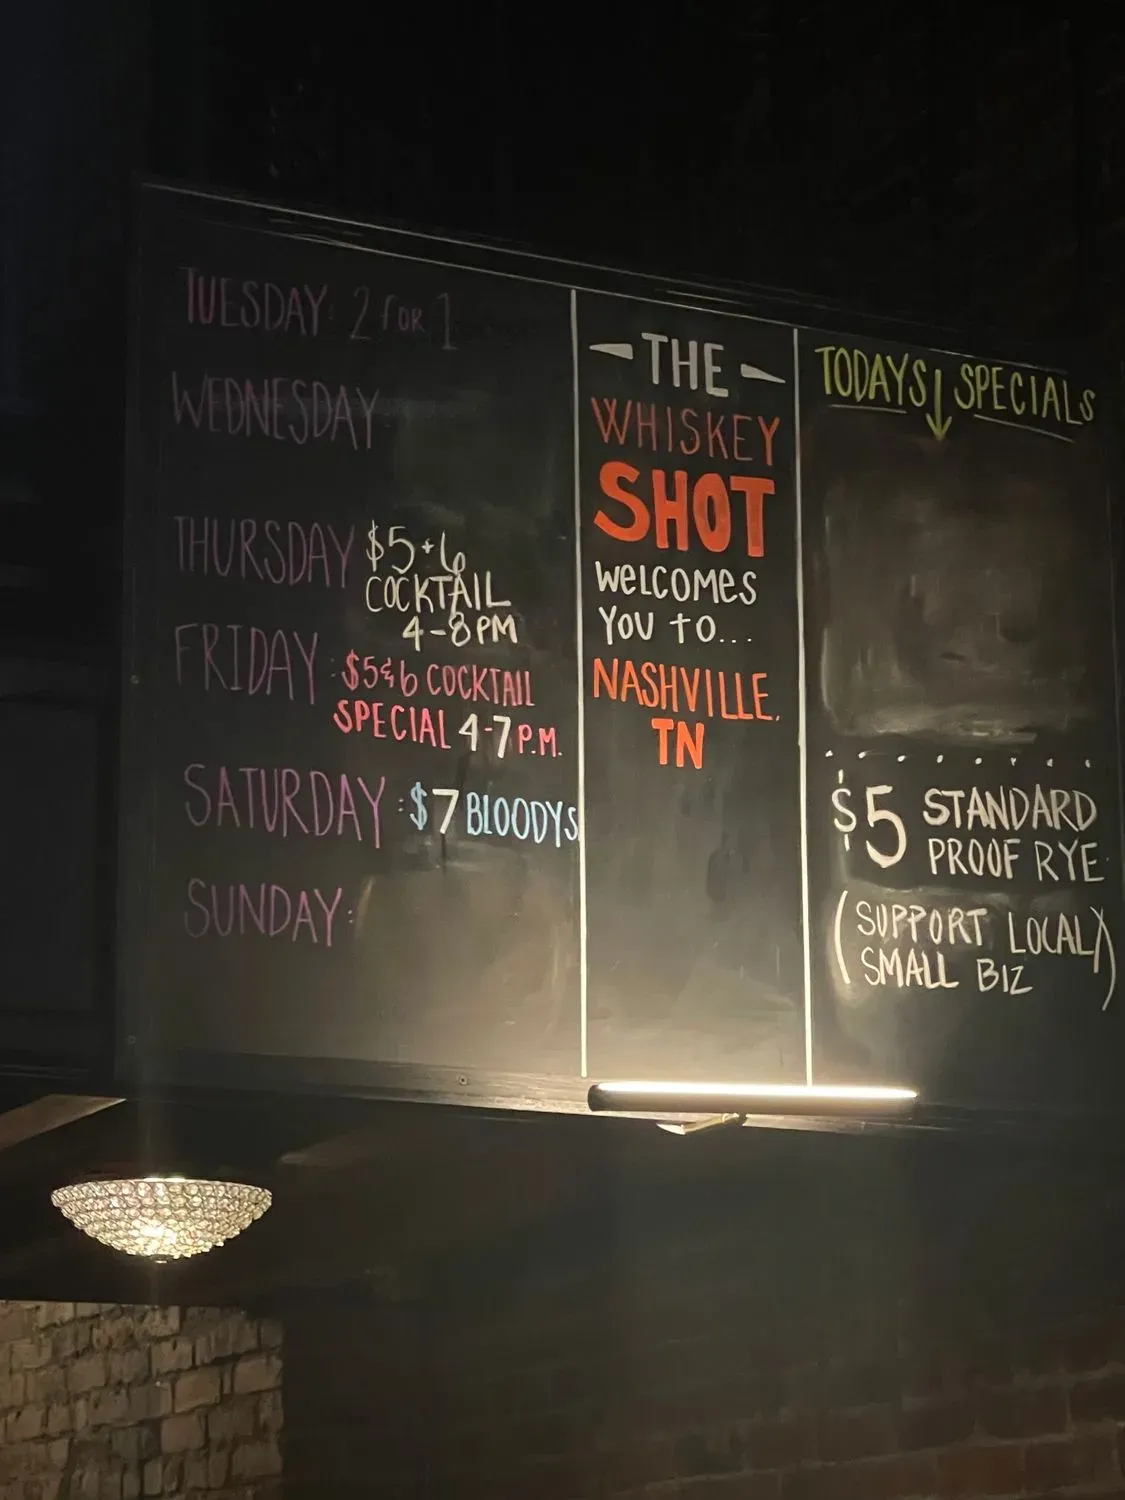 TUESDAY: 2 FOR 1
WEDNESDAY
THURSDAY $5+6
COCKTAIL
4-8PM
FRIDAY: $5&6 COCKTAIL
SPECIAL 4-7 P.M.
SATURDAY: $7 BLOODYS
SUNDAY:
THE
WHISKEY
SHOT
WELCOMES
YOU TO...
NASHVILLE,
TN
TODAYS SPECIALS
$5 STANDARD
PROOF RYE
(SUPPORT LOCAL)
SMALL BIZ